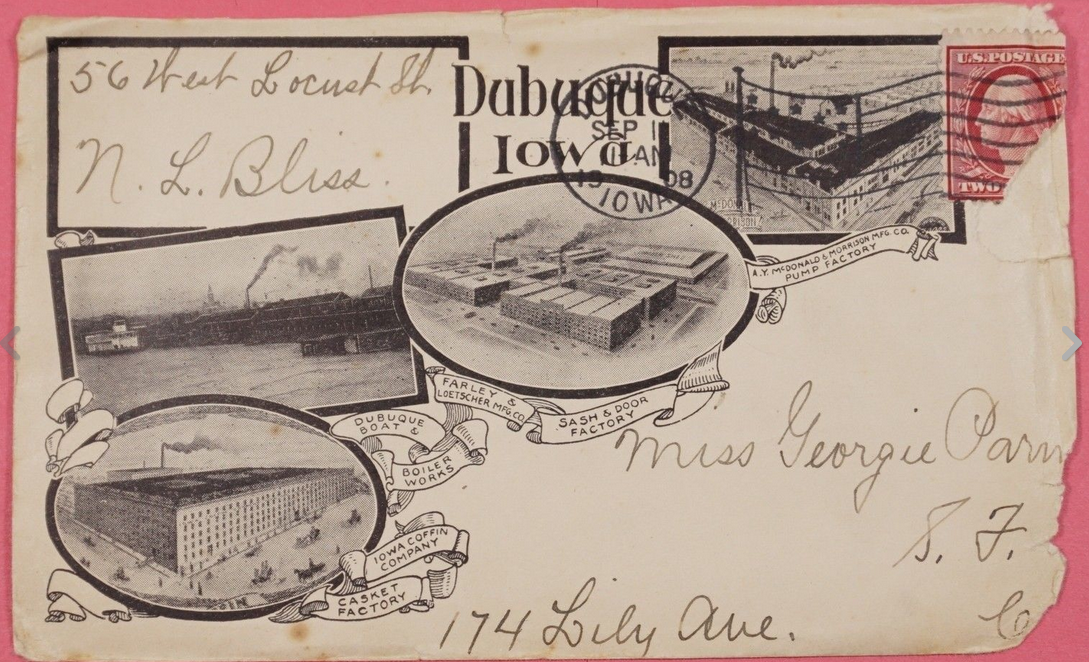 56 West Locust St.
N. L. Bliss.
Dubuque
Iowa
SEP 1
11 AM
19 08
IOWA
U.S. POSTAGE
TWO
A.Y. McDONALD & MORRISON MFG. CO.
PUMP FACTORY
FARLEY &
LOETSCHER MFG. CO.
SASH & DOOR
FACTORY
DUBUQUE
BOAT &
BOILER
WORKS
IOWA COFFIN
COMPANY
CASKET
FACTORY
Miss Georgie Parm
S. F.
174 Lily Ave.
C